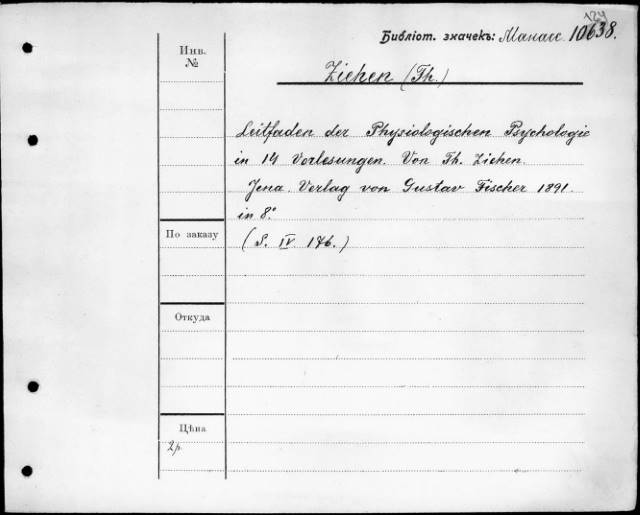 124
Библіот. значекъ: Манасс. 10638.
Инв.
№
Ziehen (Th.)
Leitfaden der Physiologischen Psychologie
in 14 Vorlesungen. Von Th. Ziehen.
Jena. Verlag von Gustav Fischer 1891.
in 8.°
По заказу
(S. IV. 176.)
Откуда
Цѣна
2 р.